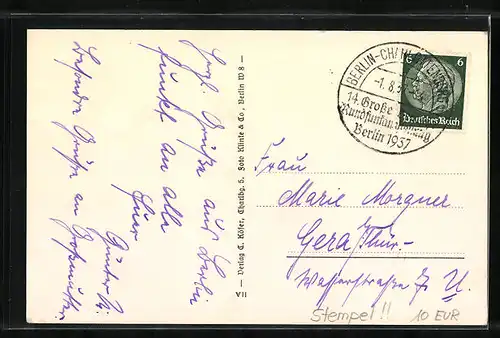 Herzl. Grüße aus Berlin
sendet an alle
Euer
Günter
Besondre Grüße an Großmutter
VII — Verlag C. Köfer, Charlbg. 5. Foto Klinte & Co, Berlin W 8 —
BERLIN-CH
-1.8.3
14. Große
Rundfunkausstellung
Berlin 1937
6 6
Deutsches Reich
Frau
Marie Morgner
Gera Thür.
Wasserstraße U.
Stempel!! 10 EUR